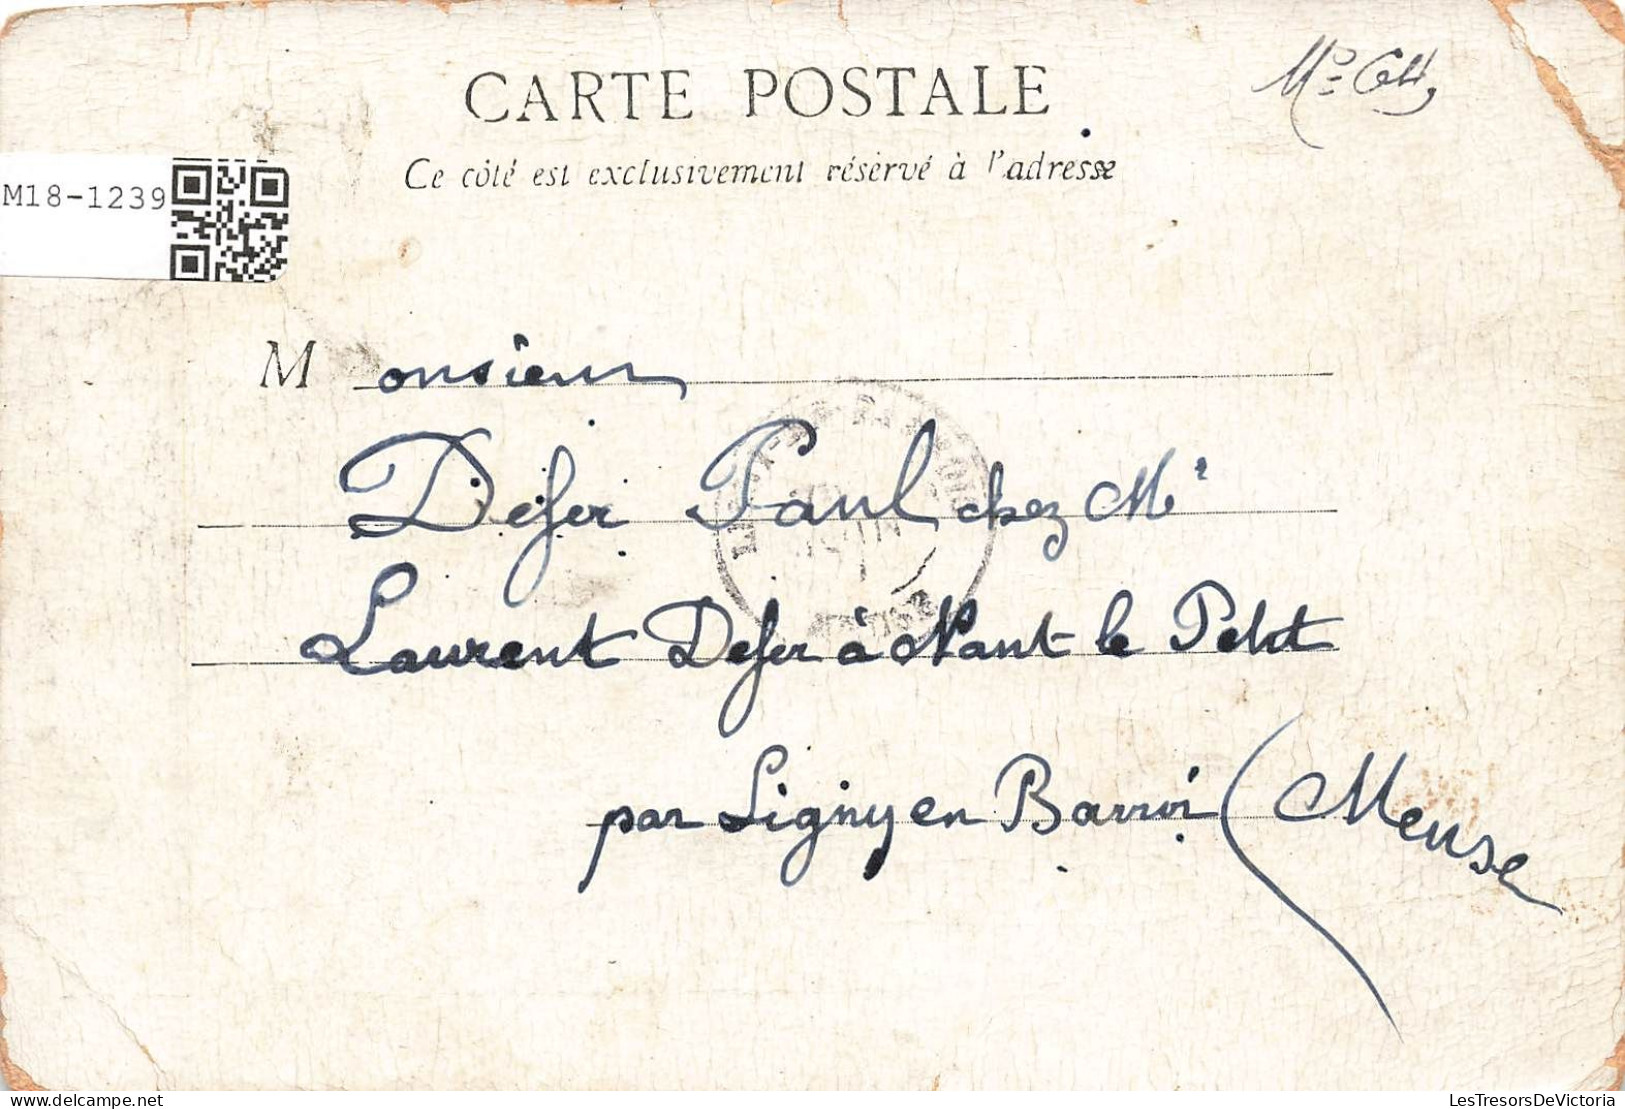 CARTE POSTALE
Ce côté est exclusivement réservé à l'adresse
M18-1239
Monsieur
Defer Paul chez Mr
Laurent Defer à Nant le Petit
par Ligny en Barroi (Meuse
MEUSE
M18-1239.jpg
LesTresorsDeVictoria